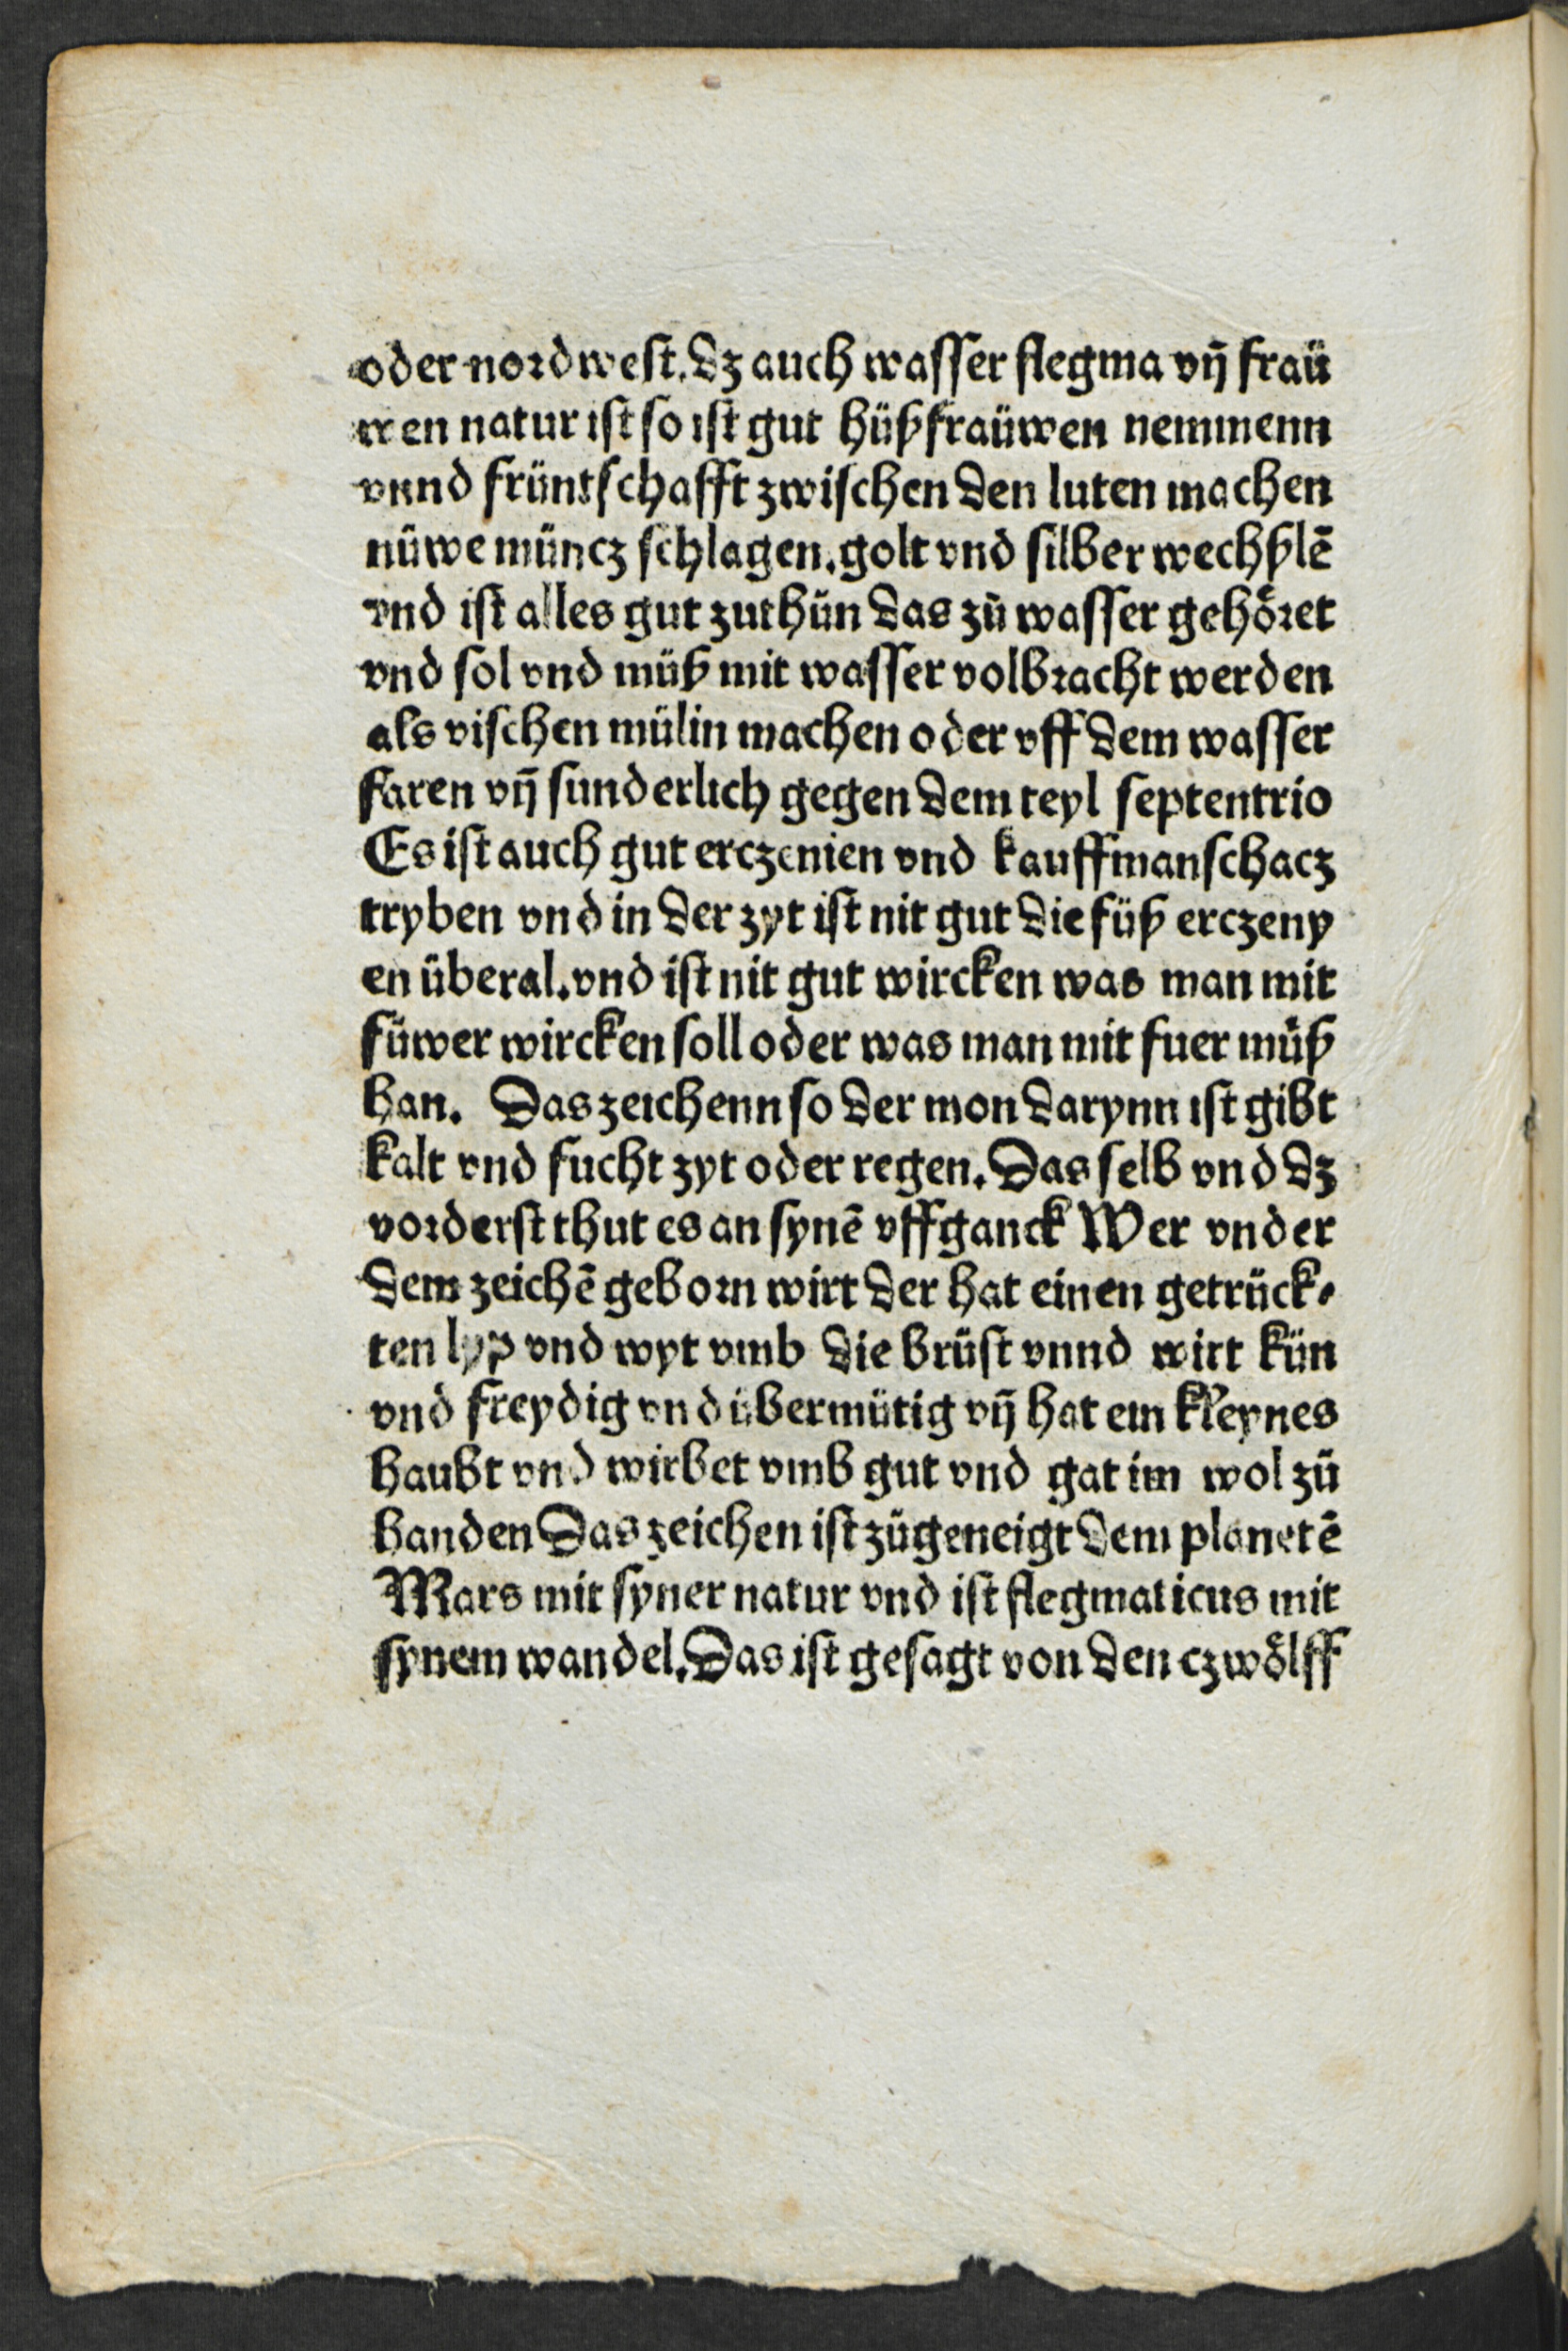 oder nordwest. dz auch wasser flegma vñ fraü
wen natur ist so ist gut hüßfraüwen nemmenn
vnnd früntschafft zwischen den luten machen
nüwe müncz schlagen. golt vnd silber wechßlẽ
vnd ist alles gut zuthün das zü wasser gehöret
vnd sol vnd müß mit wasser volbracht werden
als vischen mülin machen oder vff dem wasser
faren vñ sunderlich gegen dem teyl septentrio
Es ist auch gut erczenien vnd kauffmanschacz
tryben vnd in der zyt ist nit gut die füß erczeny
en überal. vnd ist nit gut wircken was man mit
füwer wircken soll oder was man mit fuer müß
han. Das zeichenn so der mon darynn ist gibt
kalt vnd fucht zyt oder regen. Das selb vnd dz
vorderst thut es an synẽ vffganck Wer vnder
dem zeichẽ geborn wirt der hat einen getrück⸗
ten lyp vnd wyt vmb die brüst vnnd wirt kün
vnd freydig vnd übermütig vñ hat ein kleynes
haubt vnd wirbet vmb gut vnd gat im wol zü
handen Das zeichen ist zügeneigt dem planetẽ
Mars mit syner natur vnd ist flegmaticus mit
synem wandel. Das ist gesagt von den czwölff